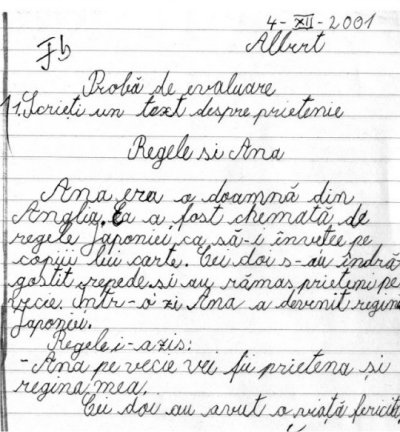 4-XII-2001
Albert
Fb
Probă de evaluare
1. Scrieți un text despre prietenie
Regele si Ana
Ana era o doamnă din
Anglia. Ea a fost chemată de
regele Japoniei ca să-i învețe pe
copiii lui carte. Cei doi s-au îndră-
gostit repede si au rămas prieteni pe
vecie. Într-o zi Ana a devenit regina
Japoniei.
Regele i-a zis:
- Ana pe vecie vei fii prietena și
regina mea.
Cei doi au avut o viață fericită